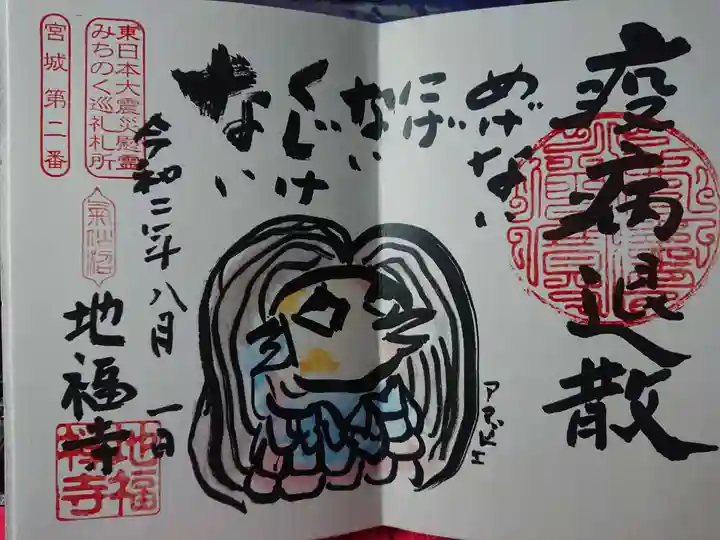 疫病退散
めげない
にげ
ない
くじけ
ない
アマビヱ
令和二年八月一日
地福寺
東日本大震災慰霊
みちのく巡礼札所
宮城第二番
気仙沼
地福
禅寺